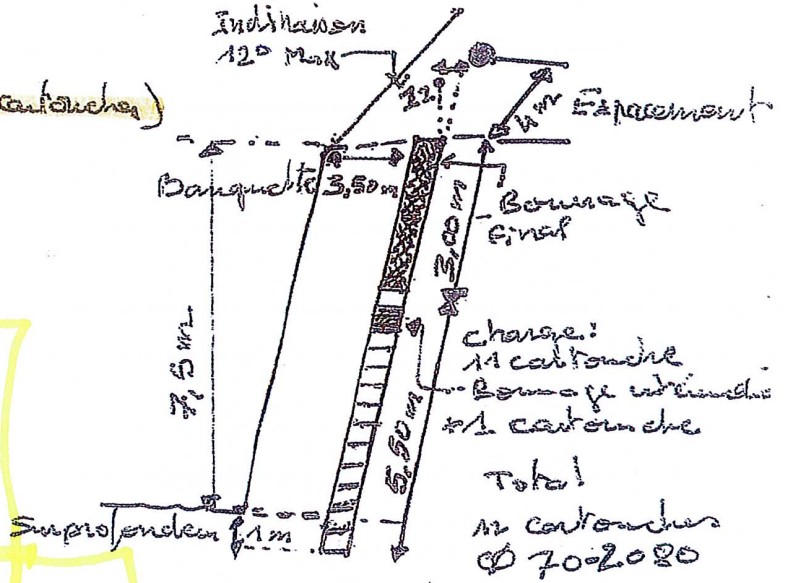 Inclinaison
12° Max
cartouches)
4m Espacement
Banquette 3,50m
Bourrage
final
3,00m
7,5m
charge:
11 cartouche
Bourrage
+1 cartouche
5,50m
Total
12 cartouches
Surprofondeur 1m
Ø 70-2080